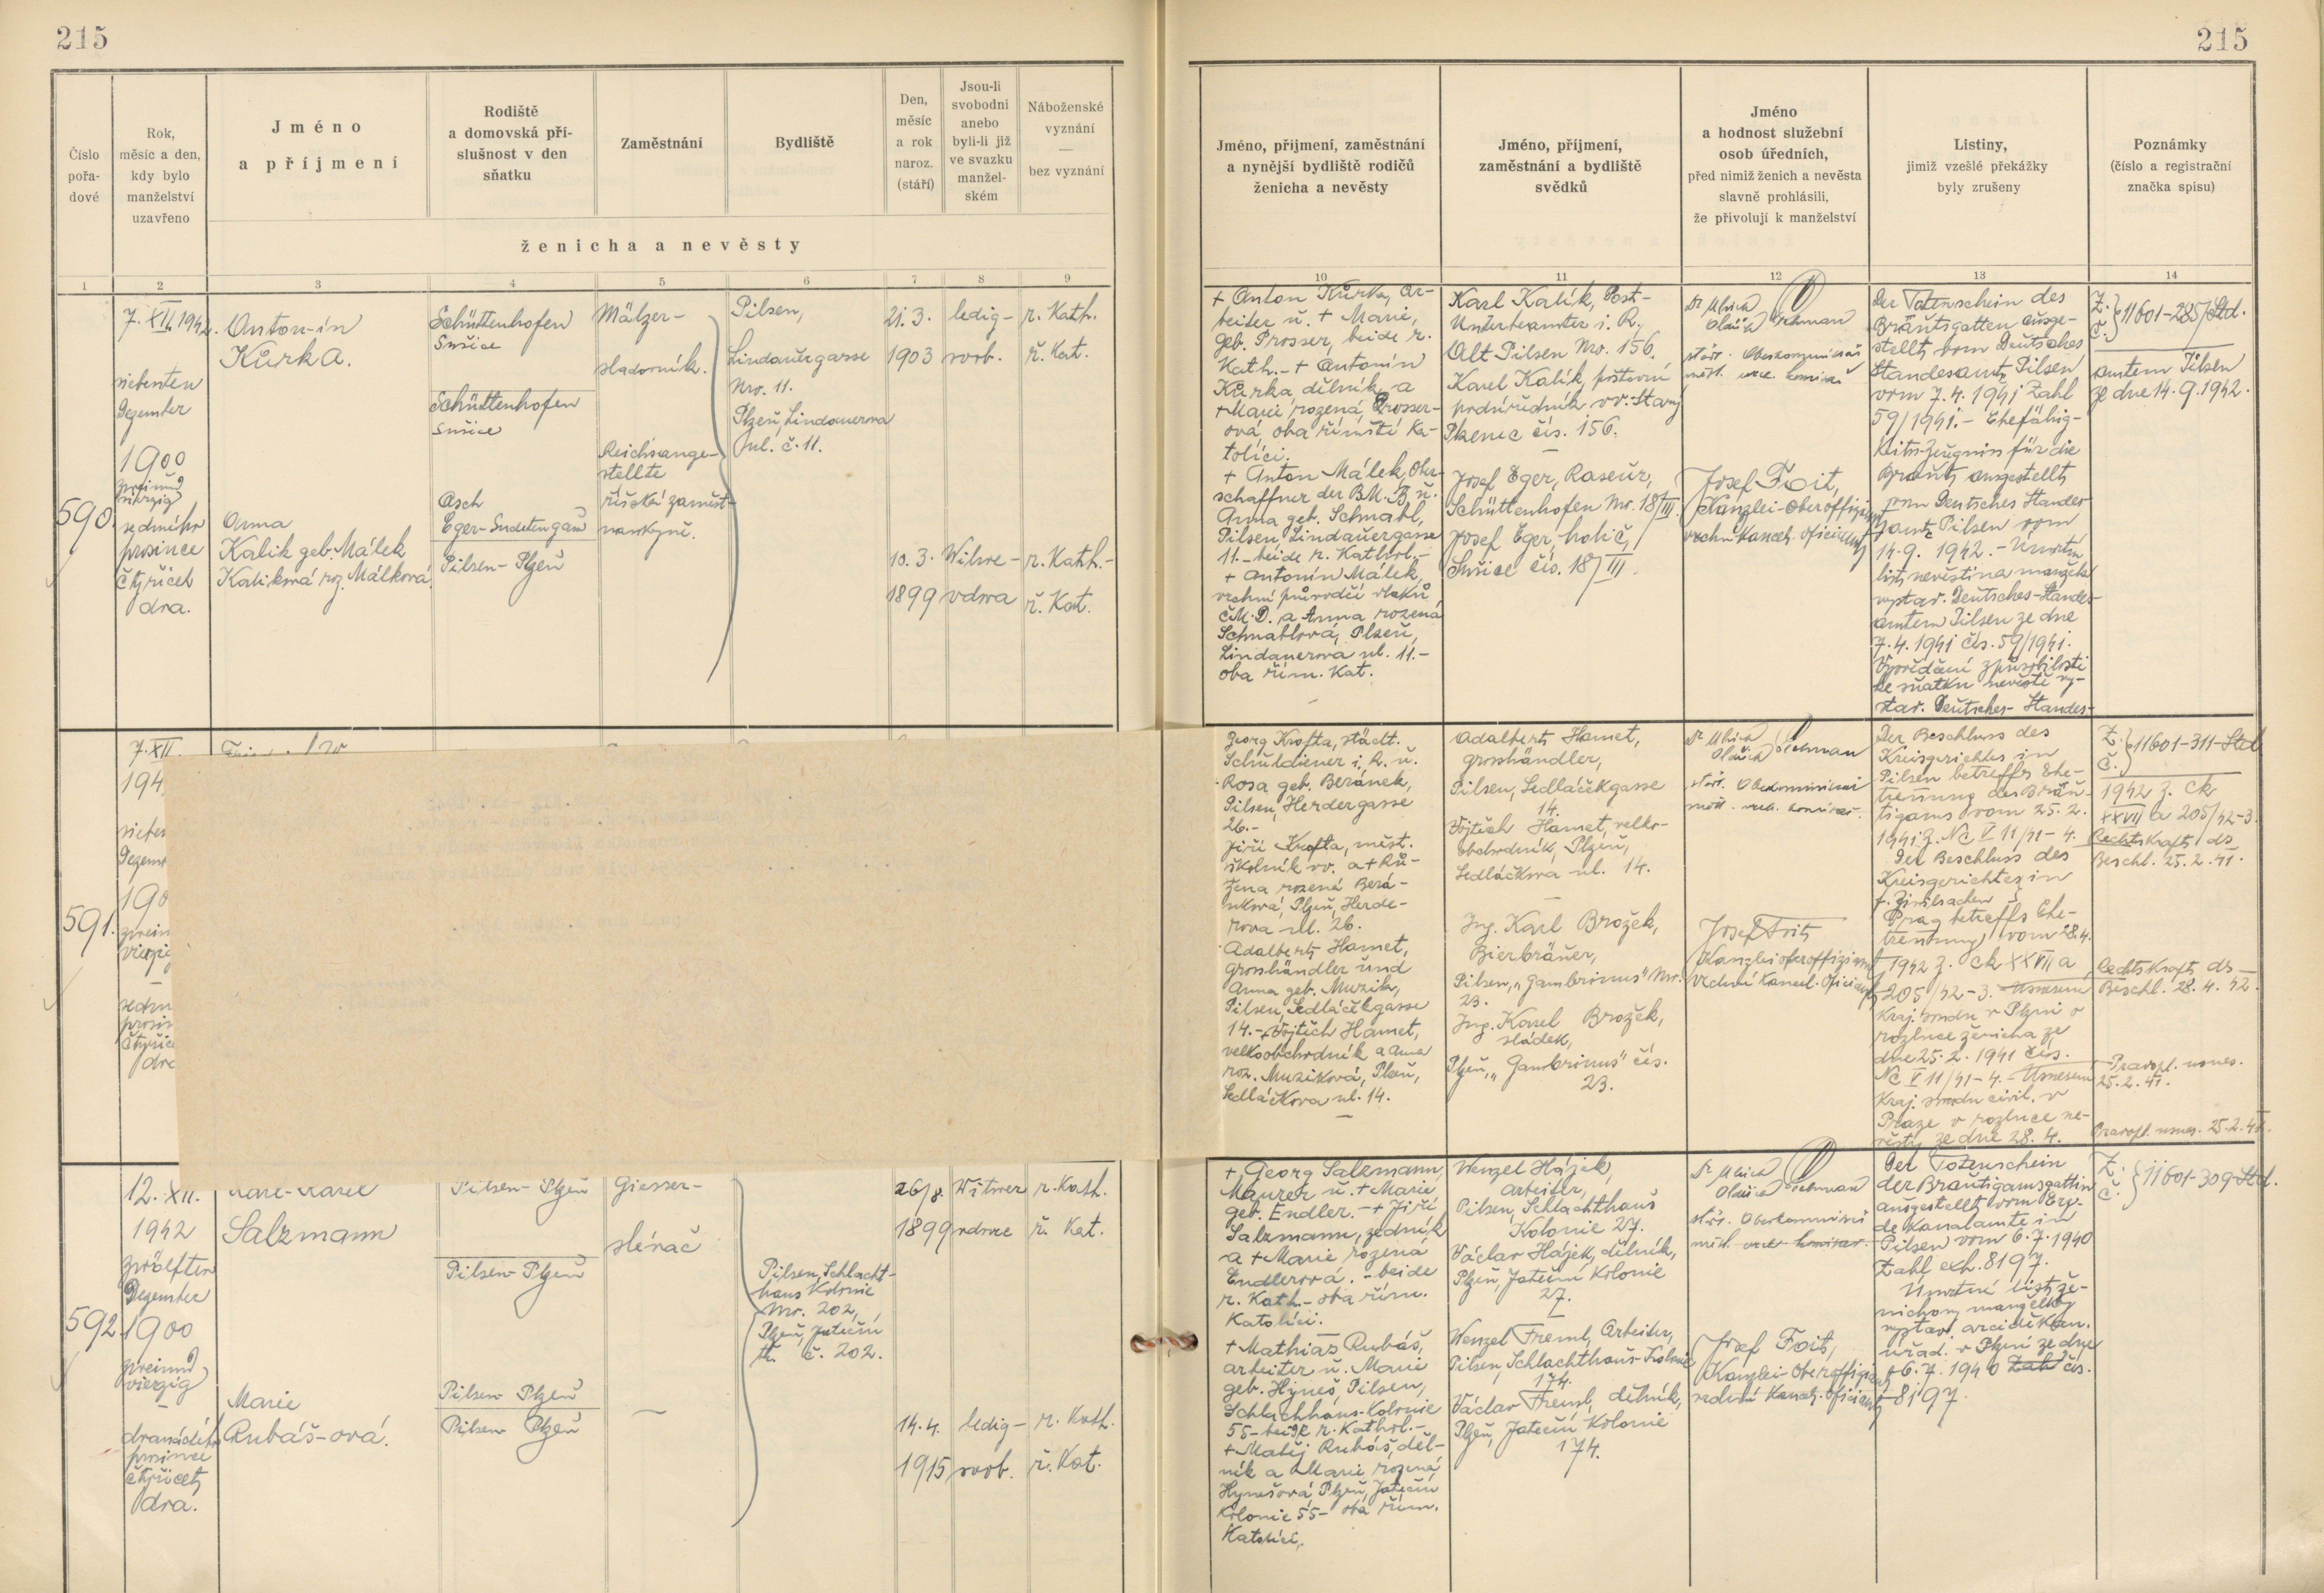 215
215
Číslo
pořa-
dové
Rok,
měsíc a den,
kdy bylo
manželství
uzavřeno
Jméno
a příjmení
Rodiště
a domovská pří-
slušnost v den
sňatku
Zaměstnání
Bydliště
Den,
měsíc
a rok
naroz.
(stáří)
Jsou-li
svobodni
anebo
byli-li již
ve svazku
manžel-
ském
Náboženské
vyznání
—
bez vyznání
ženicha a nevěsty
Jméno, příjmení, zaměstnání
a nynější bydliště rodičů
ženicha a nevěsty
Jméno, příjmení,
zaměstnání a bydliště
svědků
Jméno
a hodnost služební
osob úředních,
před nimiž ženich a nevěsta
slavně prohlásili,
že přivolují k manželství
Listiny,
jimiž vzešlé překážky
byly zrušeny
Poznámky
(číslo a registrační
značka spisu)
1 2 3 4 5 6 7 8 9 10 11 12 13 14
590.
7. XII. 1942.
siebenten
Dezember
1900
zweiund
vierzig
sedmého
prosince
čtyřicet
dva.
Anton-ín
Kůrka.
Anna
Kalik geb. Málek
Kalíková roz. Málková.
Schüttenhofen
Sušice
Schüttenhofen
Sušice
Asch
Eger-Sudetengau
Pilsen-Plzeň
Mälzer-
sladovník.
Reichsange-
stellte
říšská zaměst-
nankyně.
Pilsen,
Lindauergasse
Nro. 11.
Plzeň, Lindauerova
ul. č. 11.
21. 3.
1903
10. 3.
1899
ledig-
svob.
Witwe-
vdova
r. Kath.
ř. Kat.
r. Kath.-
ř. Kat.
+ Anton Kůrka, Ar-
beiter u. + Marie,
geb. Prosser, beide r.
Kath.- + Antonín
Kůrka dělník, a
+ Marie rozená Prosser-
ová, oba římští Ka-
tolíci.
+ Anton Málek, Ober-
schaffner der B.M.B. u.
Anna geb. Schnabl,
Pilsen, Lindauergasse
11.- beide r. Kathol.-
+ Antonín Málek,
vrchní průvodčí vlaků
Č.M.D. a Anna rozená
Schnablová, Plzeň,
Lindauerova ul. 11.-
oba řím. Kat.
Karl Kalík, Post-
Unterbeamter i. R.
Alt Pilsen Nro. 156.
Karel Kalík, poštovní
podúředník v.v. Starý
Plzenec čís. 156.
Josef Eger, Raseur,
Schüttenhofen Nr. 18/III.
Josef Eger holič,
Sušice čís. 18/III.
Josef Foit,
Kanzlei-Oberoffiziant
vrchní kancel. oficiant
Der Totenschein des
Brautgatten ausge-
stellt vom Deutsches
Standesamt Pilsen
vom 7. 4. 1941 Zahl
59/1941.- Ehefähig-
keitszeugnis für die
Braut, ausgestellt
vom Deutsches Standes-
amt Pilsen vom
14. 9. 1942.- Úmrtní
list nevěstina manžela
vystav. Deutsches-Standes-
amtem Pilsen ze dne
7. 4. 1941 čís. 59/1941.
Vysvědčení způsobilosti
ke sňatku nevěstě vy-
stav. Deutsches-Standes-
Z.
č. } 11601-285/Std.
amtem Pilsen
ze dne 14. 9. 1942.
591.
7. XII.
194
sieben
Dezem
190
zwein
vierzig
sedm
prosin
čtyřice
dva
Georg Krofta, städt.
Schuldiener i. R. u.
Rosa geb. Beránek,
Pilsen, Herdergasse
26.-
Jiří Krofta, měst.
školník v.v. a + Rů-
žena rozená Berá-
nková, Plzeň, Herde-
rova ul. 26.
Adalbert Hamet,
Grosshändler und
Anna geb. Muzik,
Pilsen, Sedláčekgasse
14.- Vojtěch Hamet,
velkoobchodník a Anna
roz. Muziková, Plzeň,
Sedláčkova ul. 14.
Adalbert Hamet,
Grosshändler,
Pilsen, Sedláčekgasse
14.
Vojtěch Hamet, velko-
obchodník, Plzeň,
Sedláčkova ul. 14.
Ing. Karl Brožek,
Bierbräuer,
Pilsen, „Gambrinus" Nro.
23.
Ing. Karel Brožek,
sládek,
Plzeň, „Gambrinus" čís.
23.
Josef Foit
Kanzleioberoffiziant
vrchní kancel. oficiant
Der Beschluss des
Kreisgerichtes in
Pilsen betreffs Ehe-
trennung des Bräu-
tigams vom 25. 2.
1941 Z. Nc V 11/41-4.
Der Beschluss des
Kreisgerichtes in
f. Zivilsachen
Prag betreffs Ehe-
trennung vom 28. 4.
1942 Z. Ck XXVII a
205/42-3. Usnesení
Kraj. soudu v Plzni o
rozluce ženicha ze
dne 25. 2. 1941 čís.
Nc V 11/41-4.- Usnesení
Kraj. soudu civil. v
Praze o rozluce ne-
věsty ze dne 28. 4.
Z.
č. } 11601-311-Std
1942 Z. Ck
XXVII a 205/42-3.
Rechtskraft ds
Beschl. 25. 2. 41.
Rechtskraft ds
Beschl. 28. 4. 42.
Pravopl. usnes.
25. 2. 41.
Pravopl. usnes.
592
12. XII.
1942
zwölften
Dezember
1900
zweiund
vierzig
dvanáctého
prosince
čtyřicet
dva.
Karl-Karel
Salzmann
Marie
Rubáš-ová.
Pilsen-Plzeň
Pilsen-Plzeň
Pilsen-Plzeň
Pilsen-Plzeň
Giesser-
slévač
Pilsen, Schlacht-
haus Kolonie
Nro. 202,
Plzeň, Jateční
č. 202.
26/8.
1899
14. 4.
1915
Witwer
vdovec
ledig-
svob.
r. Kath.
ř. Kat.
r. Kath.
ř. Kat.
+ Georg Salzmann,
Maurer u. + Marie
geb. Endler.- + Jiří
Salzmann, zedník
a + Marie rozená
Endlerová.- beide
r. Kath.- oba řím.
Katolíci.
+ Mathias Rubáš,
Arbeiter u. Marie
geb. Hyneš, Pilsen,
Schlachthaus-Kolonie
55- beide r. Kathol.-
+ Matěj Rubáš, děl-
ník a Marie rozená
Hynešová, Plzeň, Jateční
Kolonie 55- oba řím.
Katolíci.
Wenzel Hájek,
Arbeiter,
Pilsen, Schlachthaus
Kolonie 27.
Václav Hájek, dělník,
Plzeň, Jateční Kolonie
27.
Wenzel Freml, Arbeiter,
Pilsen, Schlachthaus-Kolonie
174.
Václav Freml, dělník,
Plzeň, Jateční Kolonie
174.
Josef Foit,
Kanzlei-Oberoffiziant
vrchní kancl. oficiant
Der Totenschein
der Bräutigamsgattin
ausgestellt vom Erz-
dekanalamte in
Pilsen vom 6. 7. 1940
Zahl exh. 8197.
Úmrtní list že-
nichovy manželky
vystav. arciděkan.
úřad. v Plzni ze dne
6. 7. 1940 Zahl čís.
8197.
Z.
č. } 11601-309-Std.